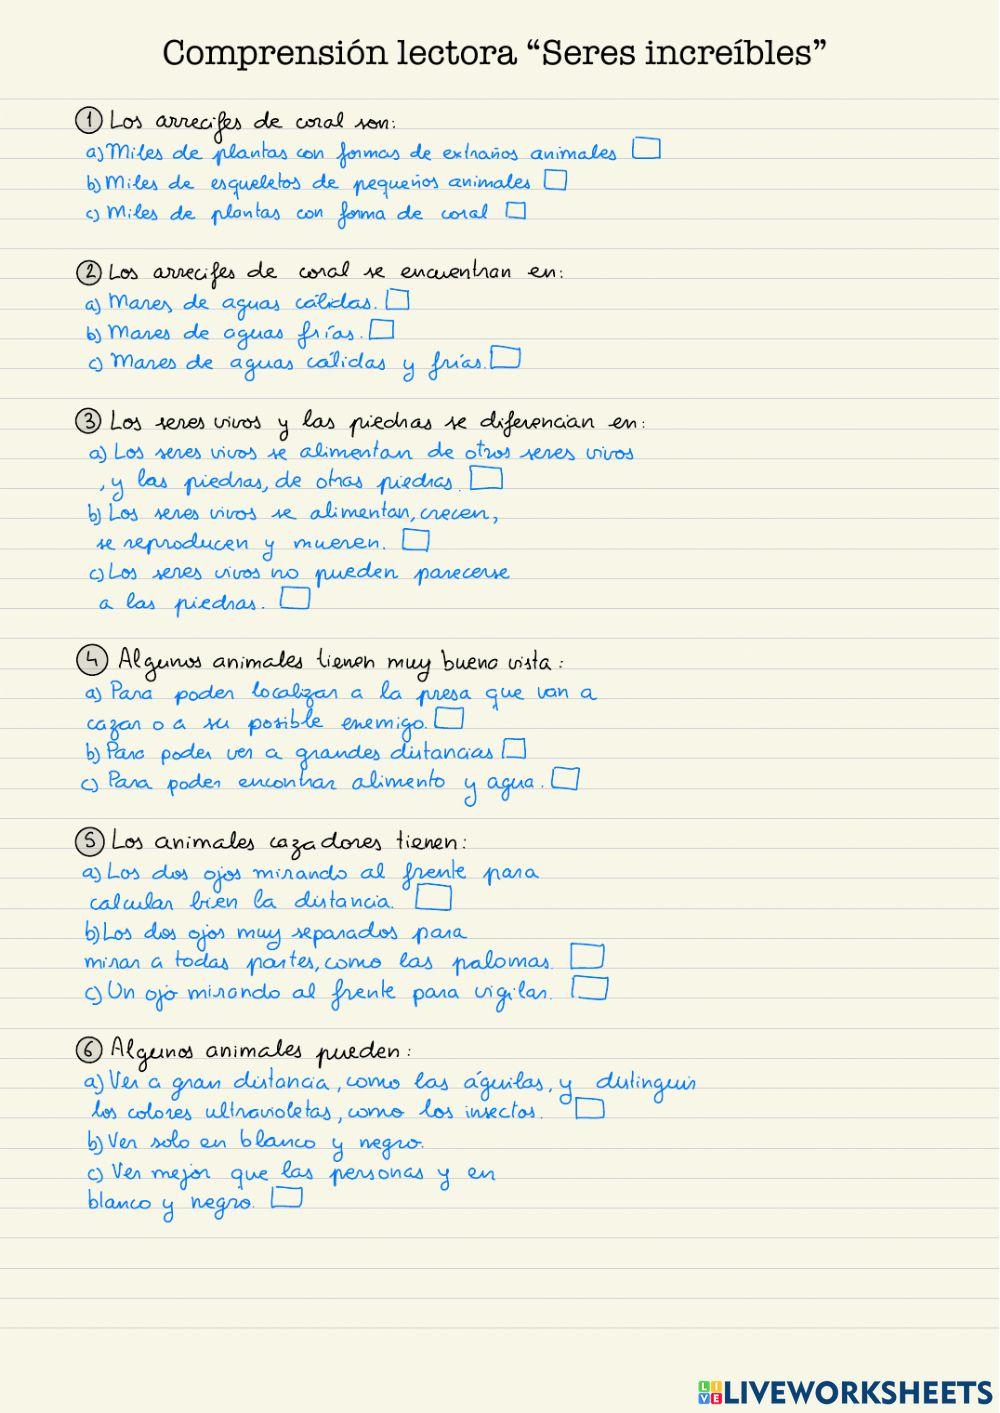 Comprensión lectora “Seres increíbles”
1 Los arrecifes de coral son:
a) Miles de plantas con formas de extraños animales
b) Miles de esqueletos de pequeños animales
c) Miles de plantas con forma de coral
2 Los arrecifes de coral se encuentran en:
a) Mares de aguas cálidas.
b) Mares de aguas frías.
c) Mares de aguas cálidas y frías.
3 Los seres vivos y las piedras se diferencian en:
a) Los seres vivos se alimentan de otros seres vivos
, y las piedras, de otras piedras.
b) Los seres vivos se alimentan, crecen,
se reproducen y mueren.
c) Los seres vivos no pueden parecerse
a las piedras.
4 Algunos animales tienen muy buena vista:
a) Para poder localizar a la presa que van a
cazar o a su posible enemigo.
b) Para poder ver a grandes distancias
c) Para poder encontrar alimento y agua.
5 Los animales cazadores tienen:
a) Los dos ojos mirando al frente para
calcular bien la distancia.
b) Los dos ojos muy separados para
mirar a todas partes, como las palomas.
c) Un ojo mirando al frente para vigilar.
6 Algunos animales pueden:
a) Ver a gran distancia, como las águilas, y distinguir
los colores ultravioletas, como los insectos.
b) Ver solo en blanco y negro.
c) Ver mejor que las personas y en
blanco y negro.
LIVE LIVEWORKSHEETS